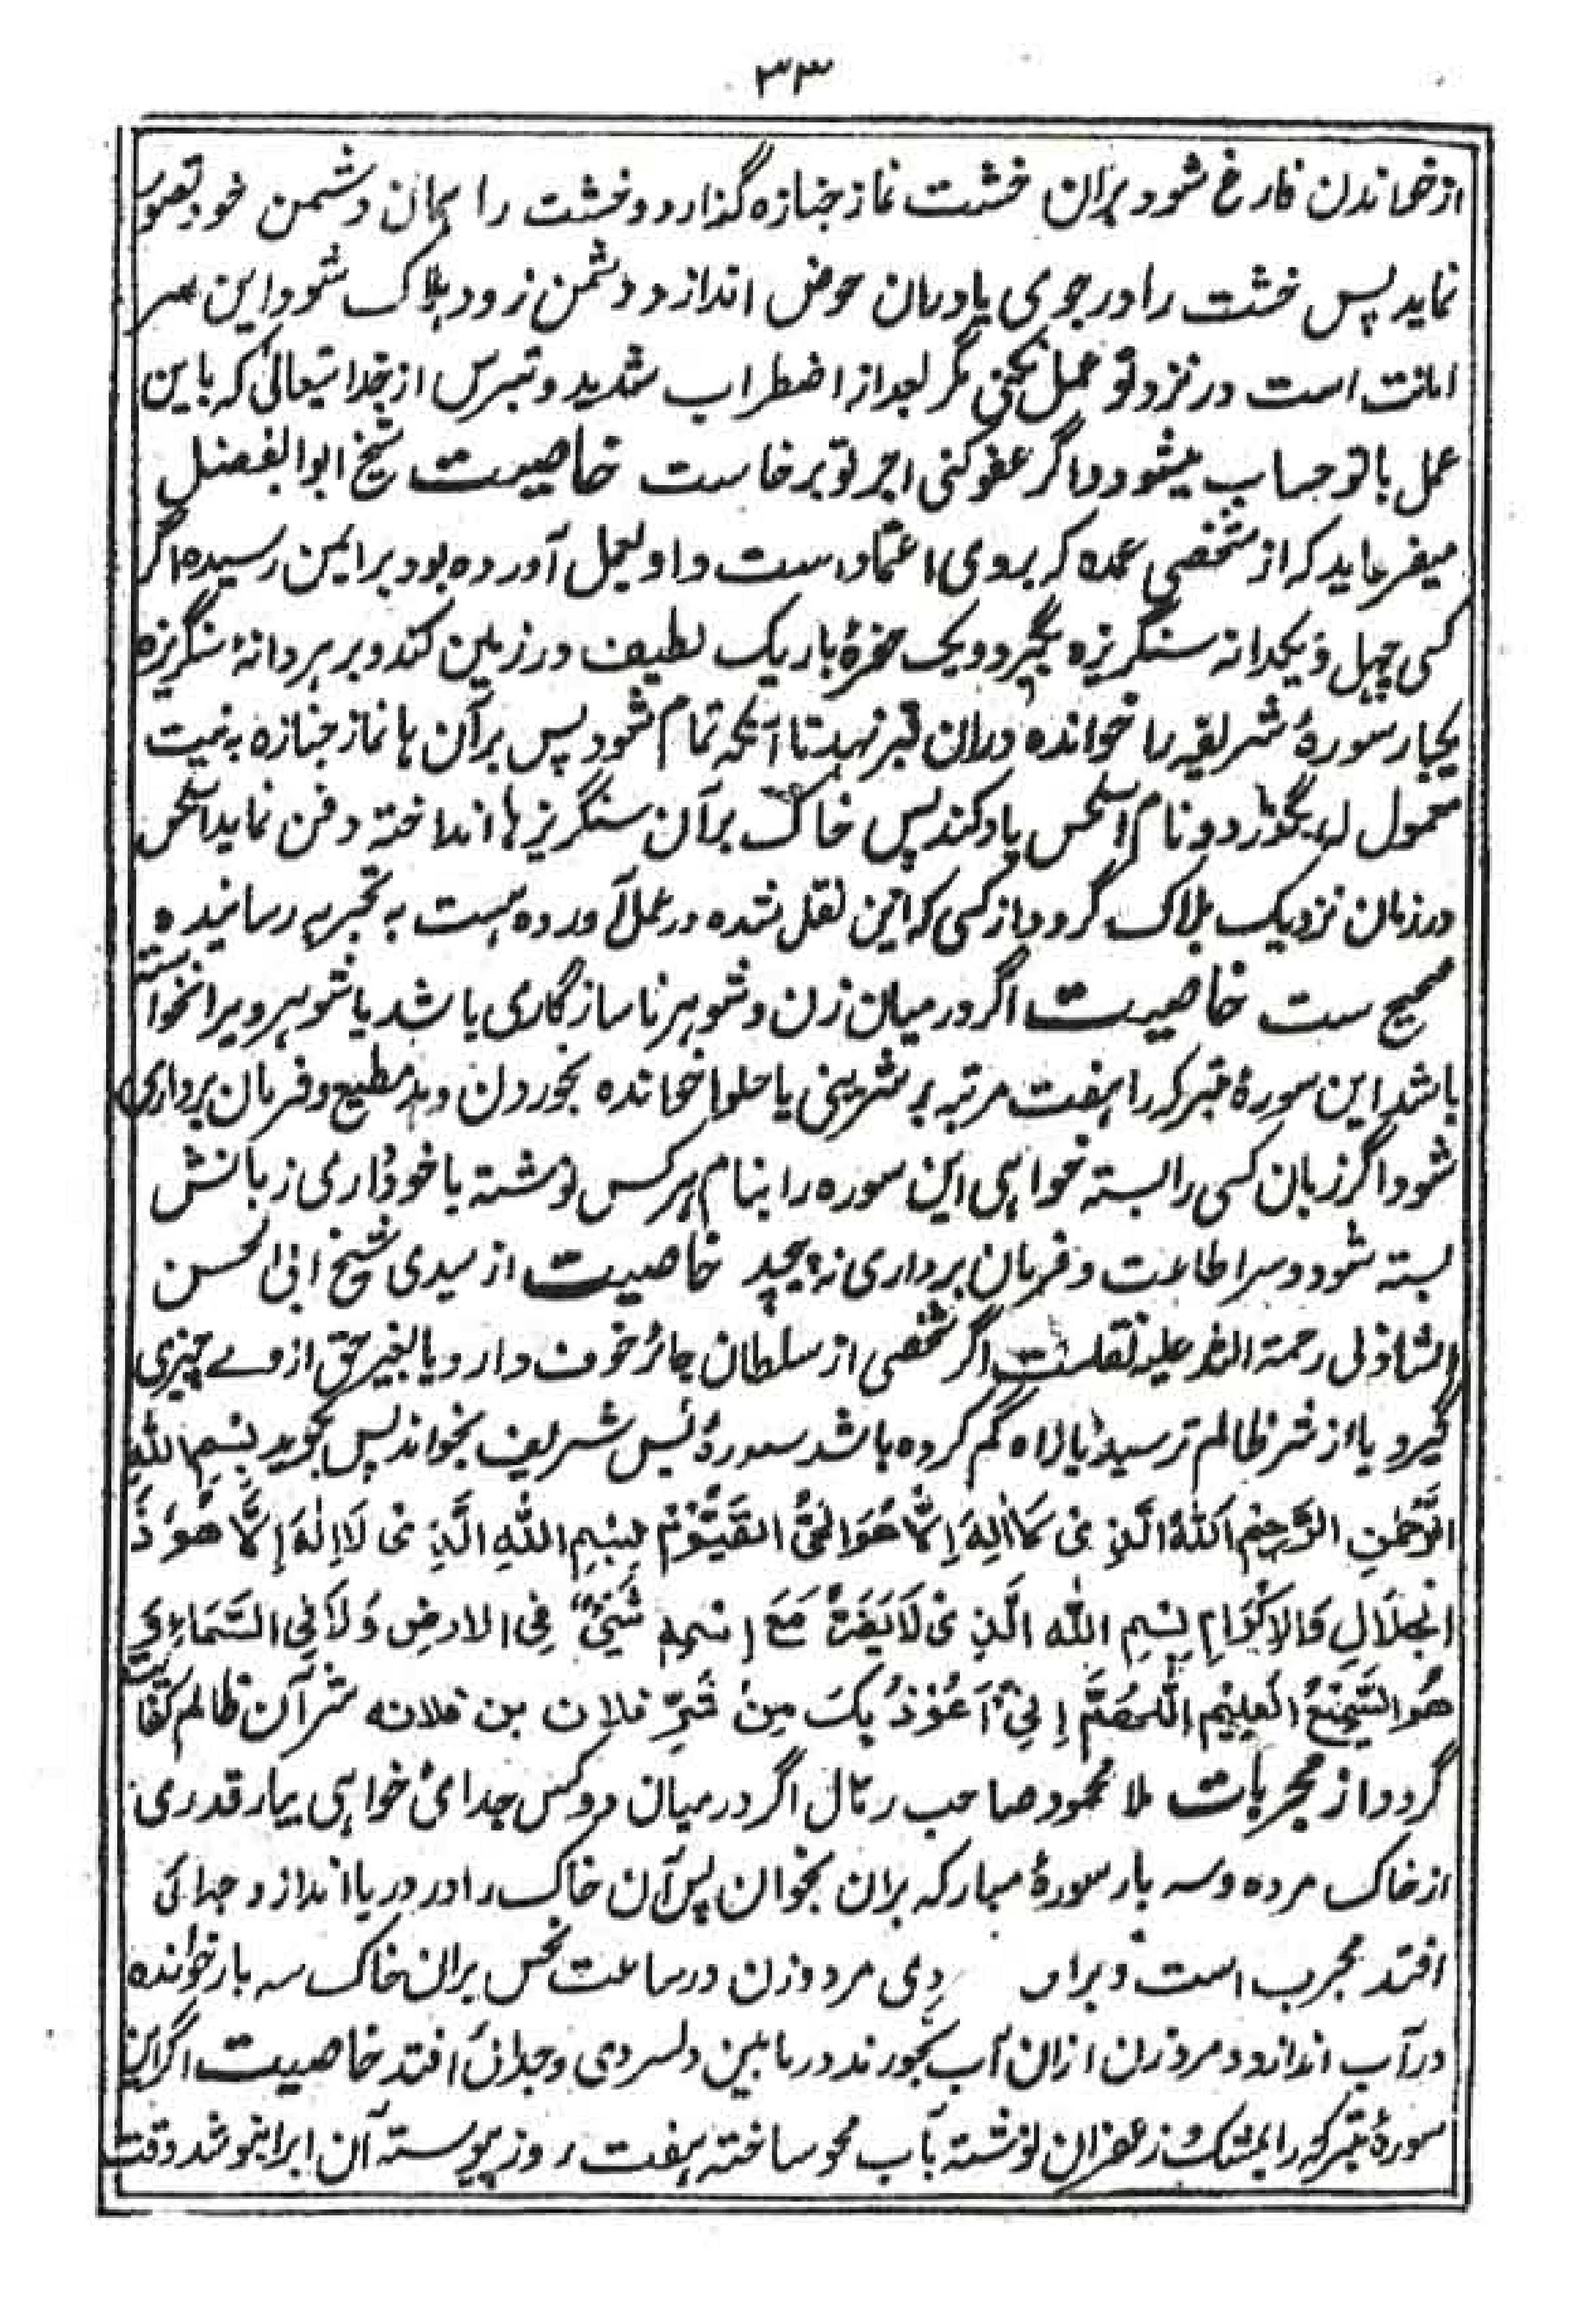 ۳۳
از خواندن فارغ شود بران خشت نماز جنازه گذارد و خشت را بجان دشمن خود تصور
نماید پس خشت را در جوی یا درمان حوض اندازد دشمن زود هلاک شود این سر
امانت است در نزد تو عمل نکنی مگر بعد از اضطراب شدید و بترس از خدایتعالی که باین
عمل با تو حساب میشود و اگر عفو کنی اجر تو بر خداست خاصیت شیخ ابوالفضل
میفرماید که از شخصی عمده که بروی اعتماد است و او بعمل آورده بود برایمن رسیده اگر
کسی چهل و یکدانه سنگریزه بگیرد و یک حفرهٔ باریک لطیف در زمین کند و بر هر دانهٔ سنگریزه
یکبار سورهٔ شریفه را خوانده دران قبر نهد تا آنکه تمام شود پس برآن ها نماز جنازه به نیت
معمول له بگذارد و نام آنکس یاد کند پس خاک برآن سنگریزها انداخته دفن نماید آنکس
در زمان نزدیک هلاک گردد از کسی که این نقل شده در عمل آورده است به تجربه رسانیده
صحیح ست خاصیت اگر در میان زن و شوهر ناسازگاری باشد یا شوهر ویرا نخواسته
باشد این سورهٔ متبرکه را هفت مرتبه بر شرینی یا حلوا خوانده بخوردن دهد مطیع و فرمان برداری
شود اگر زبان کسی را بسته خواهی این سوره را بنام هر کس نوشته با خود داری زبانش
بسته شود و سر اطاعت و فرمان برداری نه پیچد خاصیت از سیدی شیخ ابی الحسن
الشاذلی رحمة الله علیه نقلست اگر شخصی از سلطان جائر خوف دارد یا بغیر حق از وے چیزی
گیرد یا از شر ظالم ترسید یا راه گم کرده باشد سورهٔ یٰس شریف بخواند پس بگوید بِسْمِ اللهِ
الرَّحْمٰنِ الرَّحِیْمِ اَللهُ الَّذِیْ لَا اِلٰهَ اِلَّا هُوَ الْحَیُّ الْقَیُّوْمُ بِسْمِ اللهِ الَّذِیْ لَا اِلٰهَ اِلَّا هُوَ ذُو
الْجَلَالِ وَالْاِکْرَامِ بِسْمِ اللهِ الَّذِیْ لَا یَضُرُّ مَعَ اِسْمِهٖ شَیْءٌ فِی الْاَرْضِ وَلَا فِی السَّمَاءِ وَ
هُوَ السَّمِیْعُ الْعَلِیْمِ اَللّٰهُمَّ اِنِّیْ اَعُوْذُ بِکَ مِنْ شَرِّ فلان بن فلانه شر آن ظالم کفایت
گردد از مجربات ملا محمود صاحب رمال اگر در میان دو کس جدائی خواهی بیار قدری
از خاک مرده و سه بار سورهٔ مبارکه بران بخوان پس آن خاک را در دریا انداز و جدائی
افتد مجرب است و برای دی مرد و زن در ساعت نحس بران خاک سه بار خوانده
در آب اندازد و مرد و زن ازان آب بخورند در مابین دلسردی و جدائی افتد خاصیت اگر این
سورهٔ متبرکه را بمشک و زعفران نوشته بآب محو ساخته هفت روز پیوسته آن ابرا بنوشد وقت